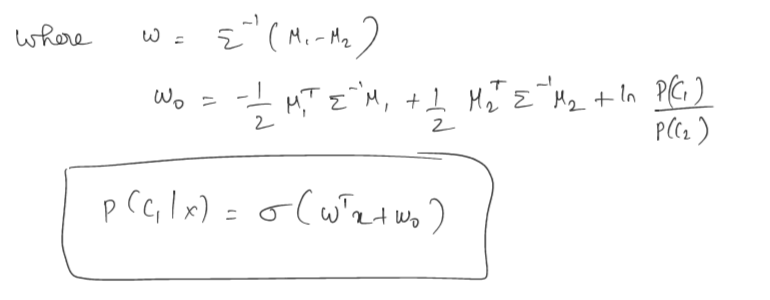 where w = Σ⁻¹ (μ₁ - μ₂)
w₀ = -1/2 μ₁ᵀ Σ⁻¹ μ₁ + 1/2 μ₂ᵀ Σ⁻¹ μ₂ + ln P(C₁)/P(C₂)
P(C₁|x) = σ(wᵀx + w₀)